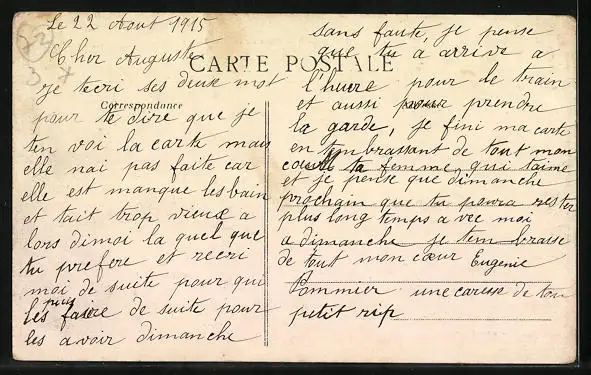 Le 22 Aout 1915
Cher Auguste
CARTE POSTALE
Correspondance
je tecri ses deux mot
pour te dire que je
ten voi la carte mais
elle nai pas faite car
elle est manque les bain
et tait trop vieux a
lors dimoi la quel que
tu prefere et recri
moi de suite pour qui
puis
les faire de suite pour
les avoir dimanche
sans faute, je pense
que tu a arrive a
l'huere pour le train
et aussi pour prendre
la garde, je fini ma carte
en tembrassant de tout mon
ta femme qui taime
et je pense que dimanche
prochain que tu poura rester
plus long temps a vec moi
a dimanche je tem brasse
de tout mon cœur Eugenie
Pommier une caresse de ton
petit rip